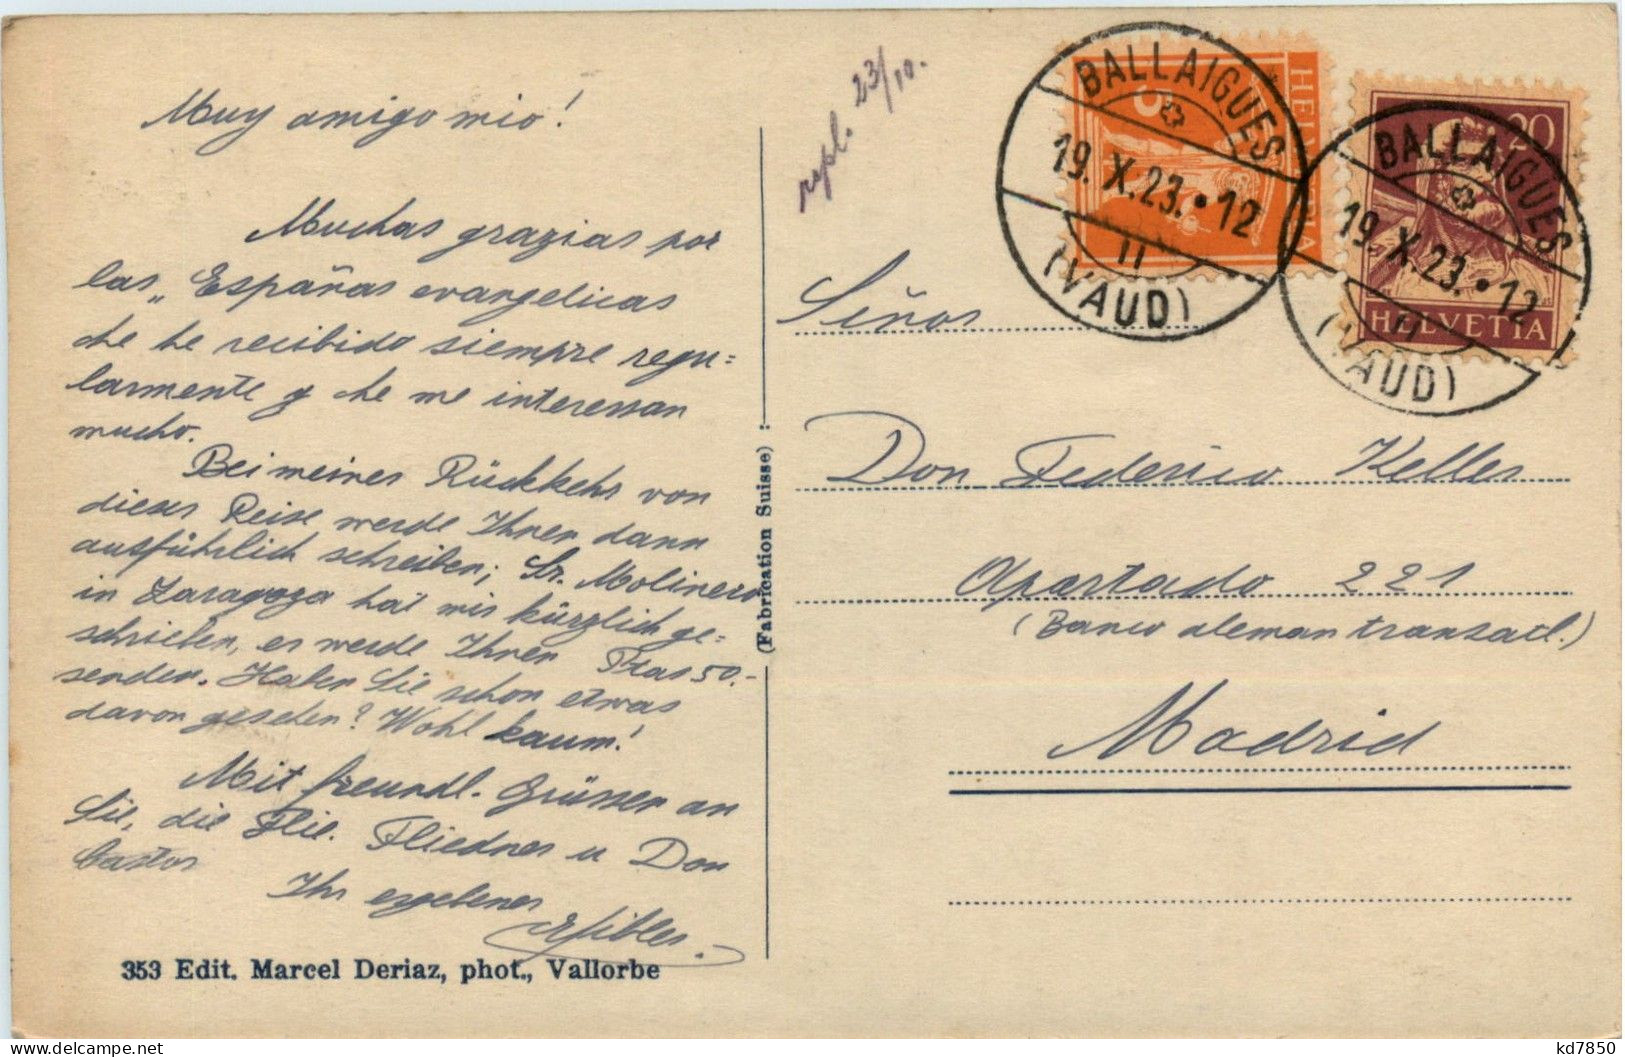 Muy amigo mio!
Muchas grazias por
las „Españas evangelicas
che he recibido siempre regu=
larmente y che me interessan
mucho.
Bei meiner Rückkehr von
dieser Reise werde Ihnen dann
ausführlich schreiben; Sr. Molinero
in Zaragoza hat mir kürzlich ge=
schrieben, er werde Ihnen Ptas 50.-
senden. Haben Sie schon etwas
davon gesehen? Wohl kaum!
Mit freundl. Grüssen an
Sie, die Flie. Fliedner u Don
Castor
Ihr ergebener
353 Edit. Marcel Deriaz, phot., Vallorbe
(Fabrication Suisse)
repl. 23/10.
5 HELVETIA
20
HELVETIA
BALLAIGUES
19. X. 23. • 12
II
(VAUD)
BALLAIGUES
19. X. 23. • 12
II
(VAUD)
Señor
Don Federico Keller
Apartado 221
(Banco aleman transatl.)
Madrid
delcampe.net
kd7850